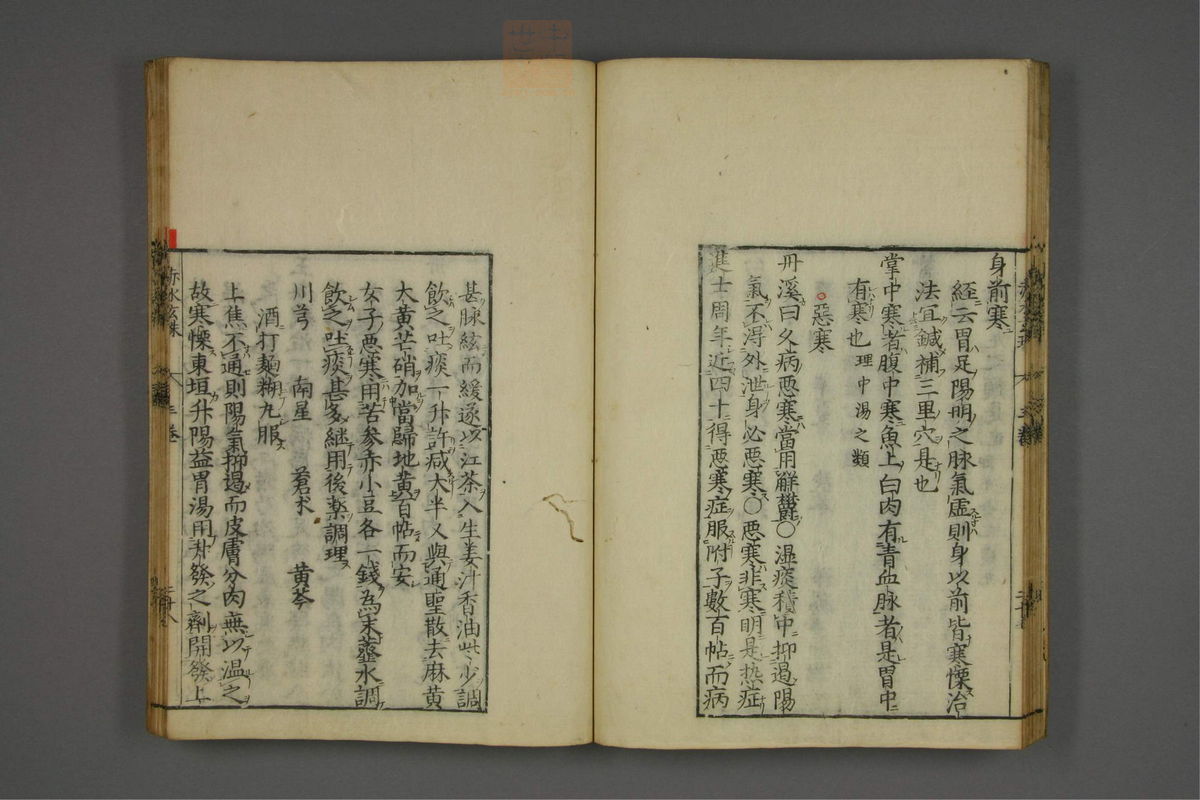 身前寒
経云胃足陽明之脉氣虚則身以前皆寒慄治
法宜鍼補三里穴是也
掌中寒者腹中寒魚上白肉有青血脉者是胃中
有寒也 理中湯之類
惡寒
丹溪曰久病悪寒當用解欝○湿痰積中抑遏陽
氣不得外泄身必悪寒○悪寒非寒明是热症
進士周年近四十得悪寒症服附子數百帖而病
甚脉絃而緩遂以江茶入生姜汁香油些少調
飲之吐痰一升許减大半又與通聖散去麻黄
大黄芒硝加當歸地黄百帖而安
女子悪寒用苦参赤小豆各一錢為末虀水調
飲之吐痰甚多継用後薬調理
川芎 南星 蒼朮 黄芩
酒打麺糊丸服
上焦不通則陽氣抑遏而皮膚分肉無以温之
故寒慄東垣升陽益胃湯用升發之劑開發上
赤水玄珠 三卷